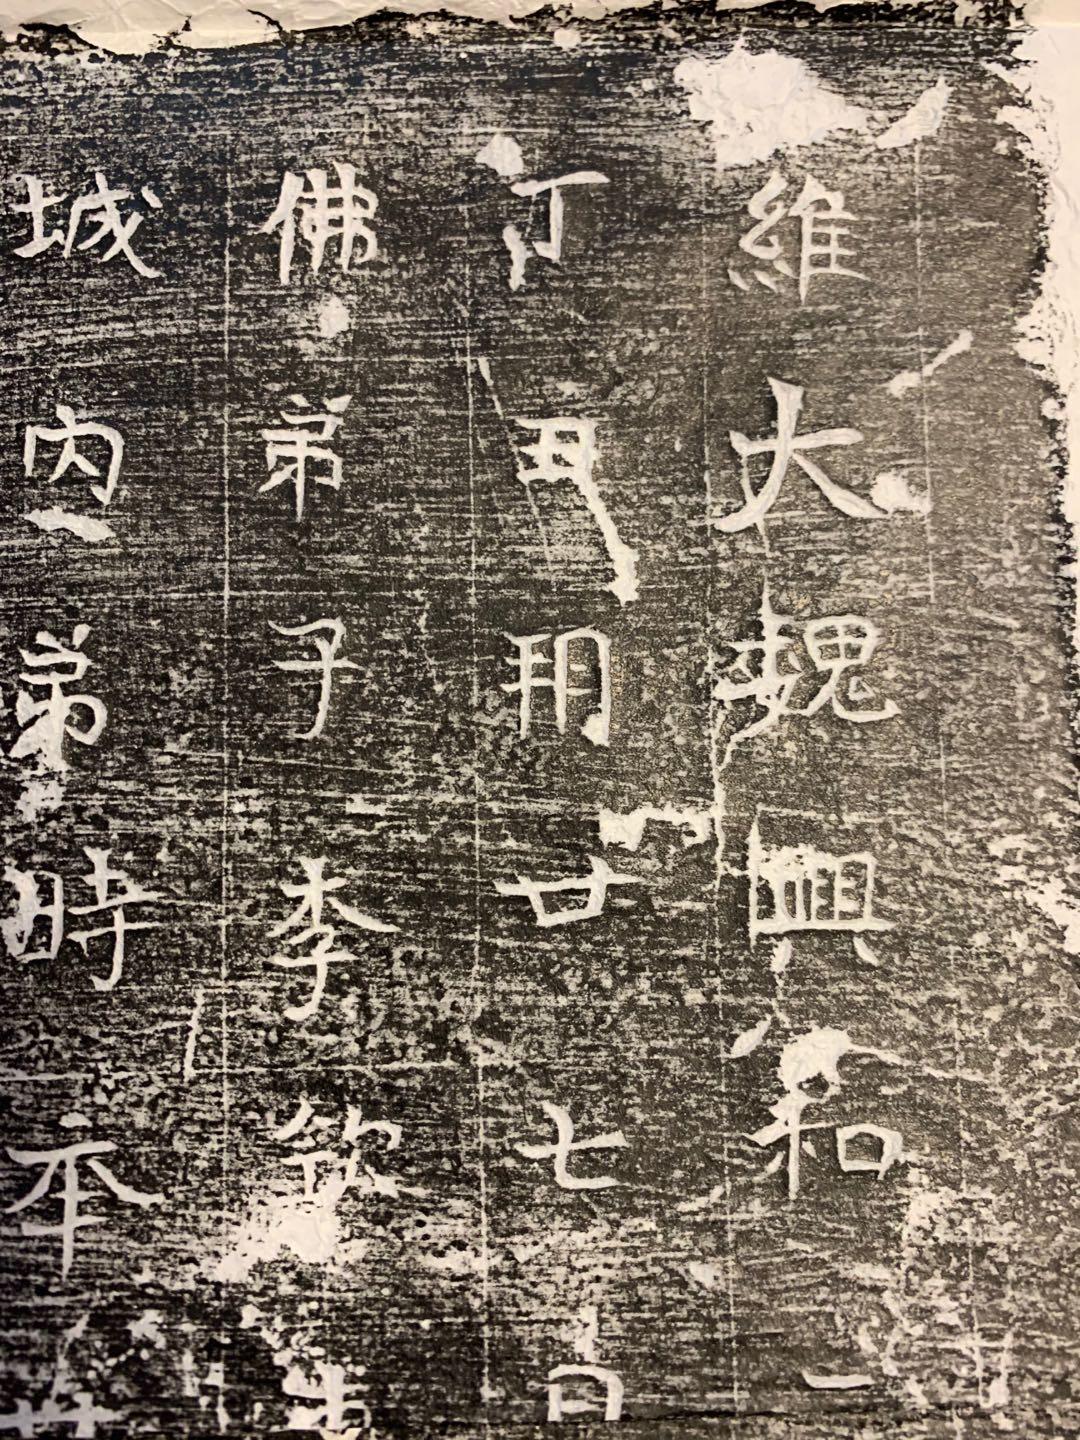 維大魏興和
丁丑朔廿七日
佛弟子李欽
城内弟時夲